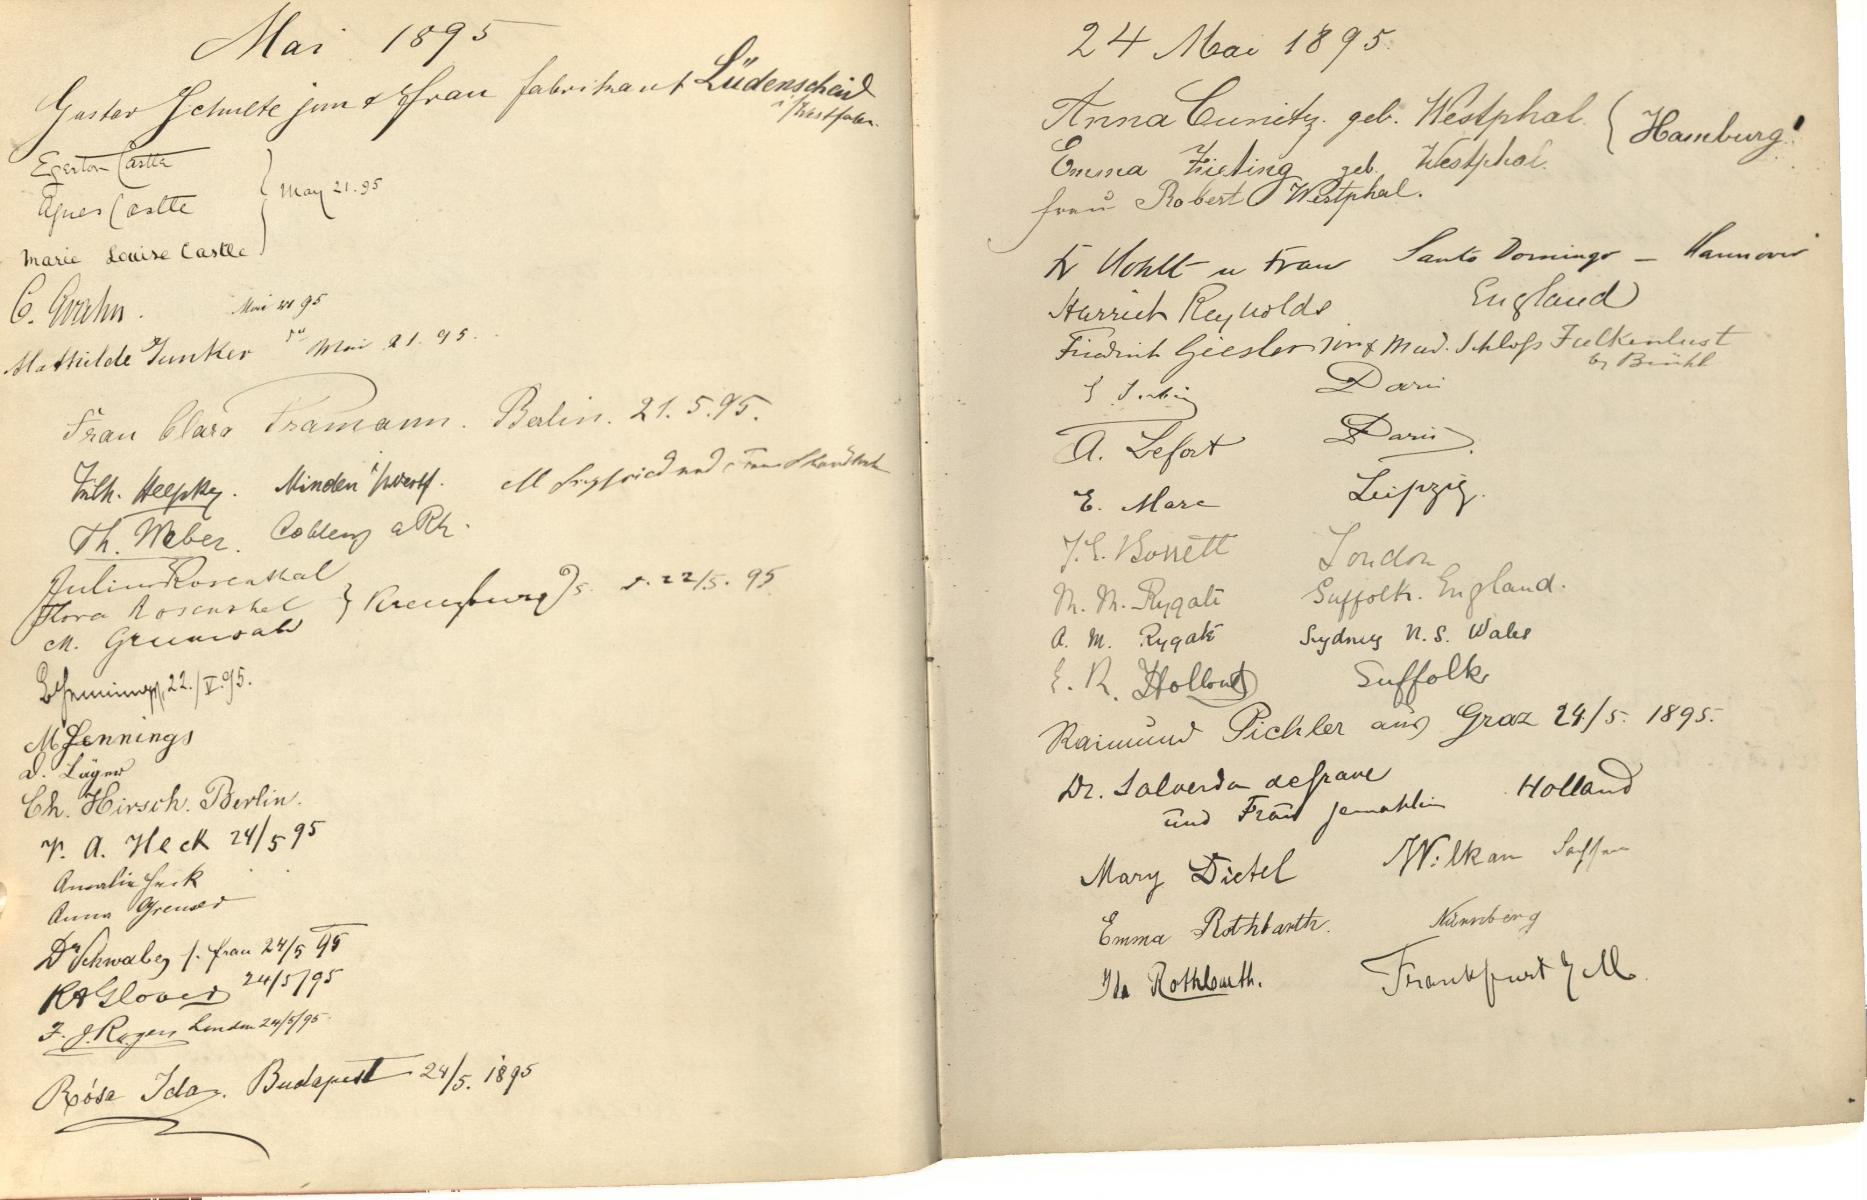 Mai 1895
Gustav Schulte jun & Frau Fabrikant Lüdenscheid
i/Westfalen
Egerton Castle
Agnes Castle } May 21. 95
Marie Louise Castle
C. Mai 95
Mathilde Junker Mai 21. 95.
Frau Clara Tramann. Berlin. 21.5.95.
Wilh. Minden i/Westf. M Siegfried und Frau
Th. Weber. Coblenz a Rh.
Julius Rosenthal
Flora Rosenthal } Kreuzburg O/S. d. 22/5. 95
M. Grunwald
22./V.95.
M Jennings
Ch. Hirsch. Berlin.
A. Heck 24/5 95
Amalie Heck
Anna
Dr Schwabe Frau 24/5 95
RA Glover 24/5/95
F. J. Rogers London 24/5/95.
Rósa Ida. Budapest 24/5. 1895
24 Mai 1895.
Anna Cunitz. geb. Westphal. { Hamburg!
Emma Zieting geb. Westphal.
Frau Robert Westphal.
Fr u Frau Santo Domingo – Hannover
Harriet Reynolds England
Friedrich Giesler jun & Mad. Schloss Falkenlust
by Brühl
Paris
A. Lefort Paris
E. Marc Leipzig.
London
M. M. Rygate Suffolk. England.
A. M. Rygate Sydney N. S. Wales
E. R. Hollond Suffolk
Raimund Pichler aus Graz 24./5. 1895.
Dr. Salverda de Grave
und Frau Gemahlin Holland
Mary Dietel Wilkau Sachsen
Emma Rothbarth. Nürnberg
Ida Rothbarth. Frankfurt M.